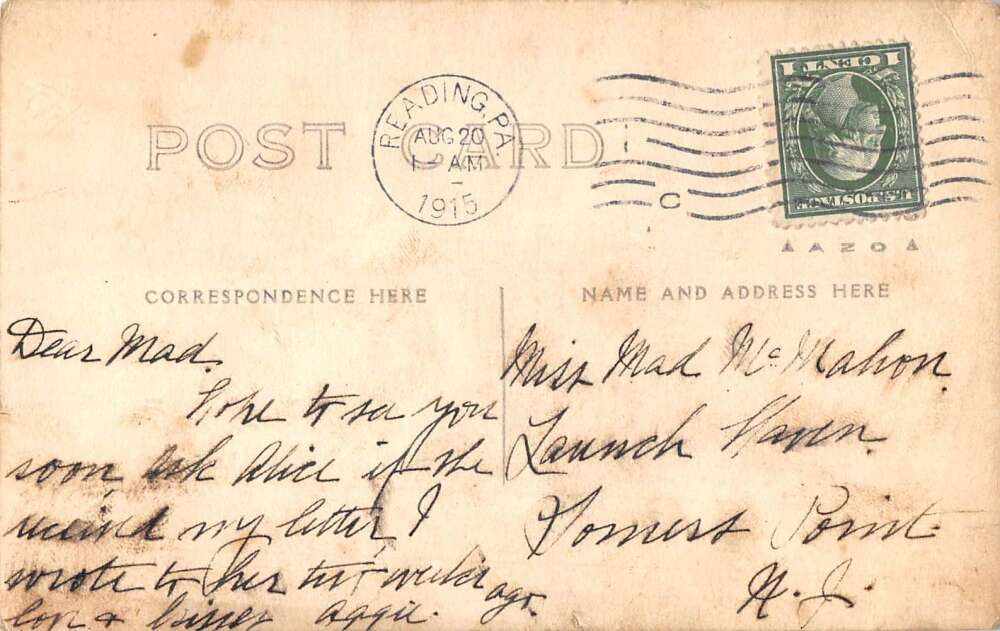 POST CARD
READING, PA
AUG 20
1 - AM
1915
C
1 CENT 1
U.S. POSTAGE
AZO
CORRESPONDENCE HERE
NAME AND ADDRESS HERE
Dear Mad.
Hope to see you
soon, ask Alice if she
received my letter, I
wrote to her two weeks
ago.
love & kisses Aggie.
Miss Mad McMahon.
Launch Haven.
Somers Point.
N. J.